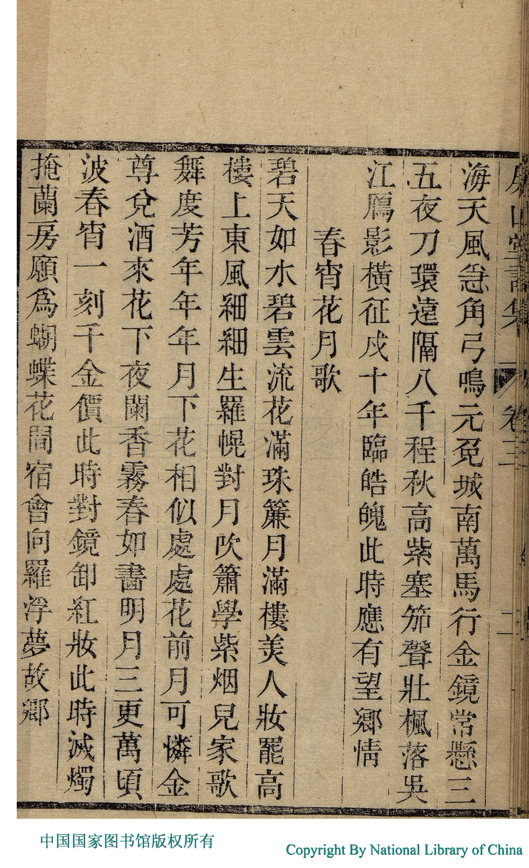 山堂詩集 卷三 二
海天風急角弓鳴元免城南萬馬行金鏡常懸三
五夜刀環遠隔八千程秋高紫塞笳聲壯楓落吳
江鴈影橫征戍十年臨皓魄此時應有望鄉情
春宵花月歌
碧天如水碧雲流花滿珠簾月滿樓美人妝罷高
樓上東風細細生羅幌對月吹簫學紫烟兒家歌
舞度芳年年年月下花相似處處花前月可憐金
尊兌酒來花下夜闌香霧春如畵明月三更萬頃
波春宵一刻千金價此時對鏡卸紅妝此時滅燭
掩蘭房願爲蝴蝶花間宿會向羅浮夢故鄉
中国国家图书馆版权所有
Copyright By National Library of China